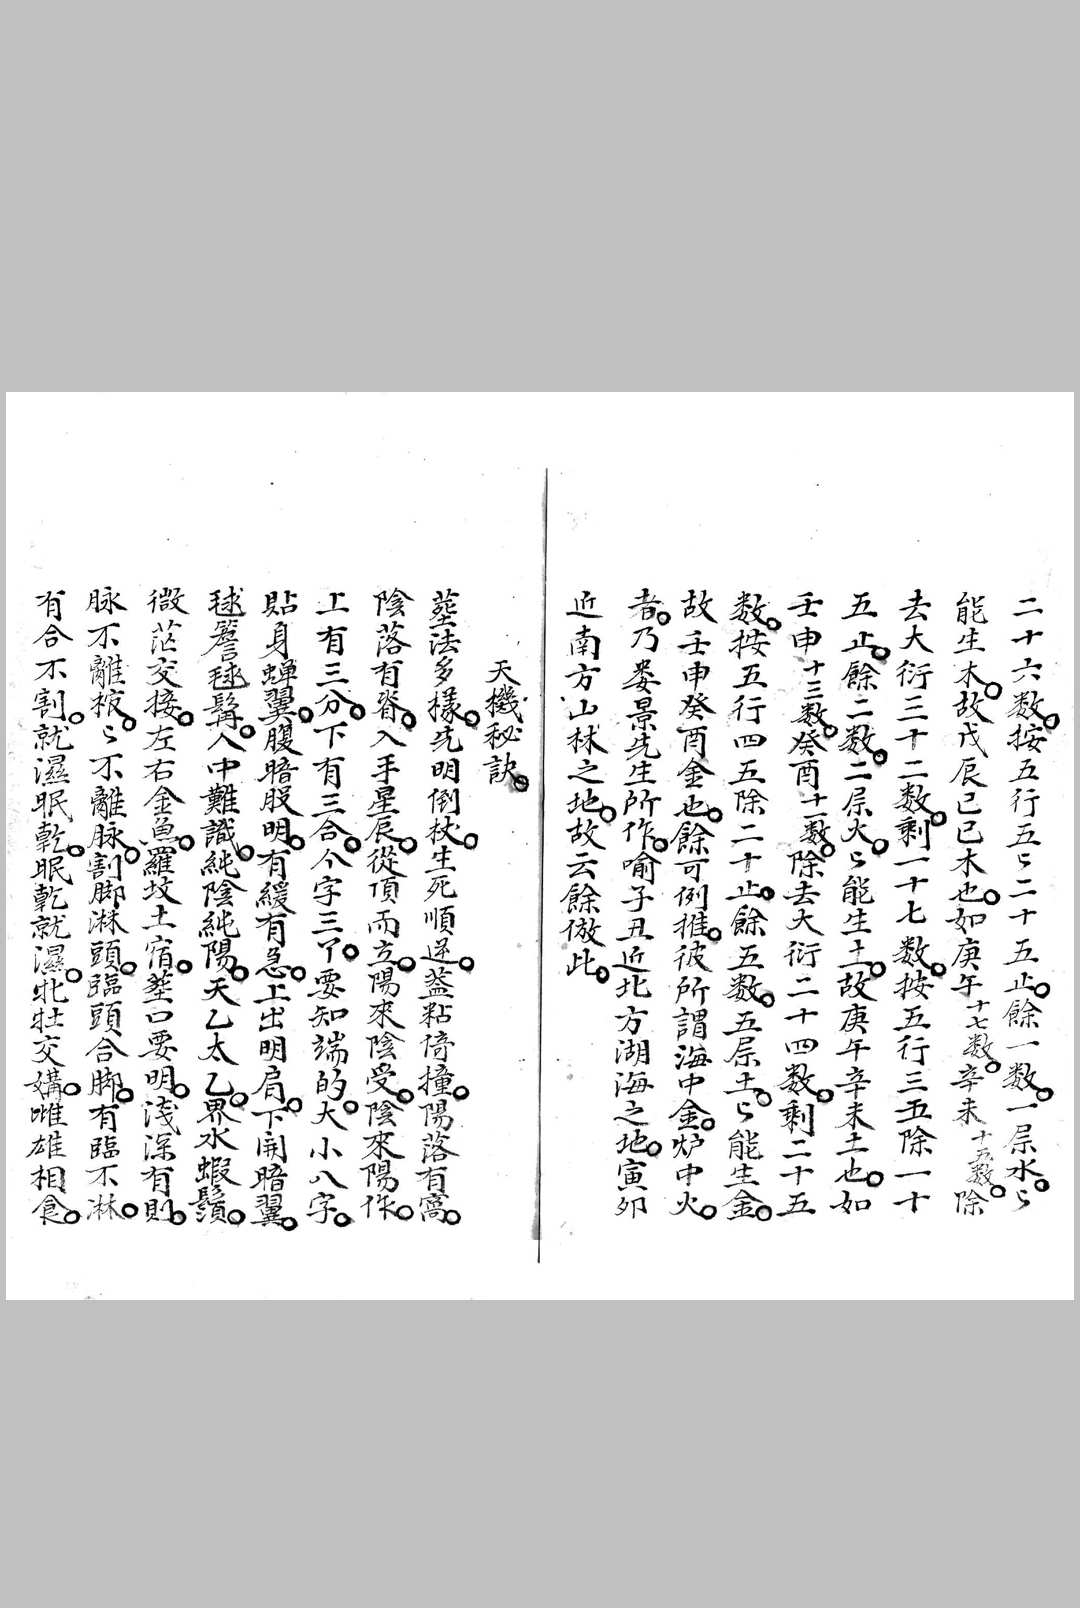 二十六数。按五行五〻二十五止。餘一数。一屬水。〻
能生木。故戊辰己巳木也。如庚午十七数。辛未十五数。除
去大衍三十二数。剩一十七数。按五行三五除一十
五止。餘二数。二屬火。〻能生土。故庚午辛未土也。如
壬申十三数。癸酉十一数。除去大衍二十四数。剩二十五
数。按五行四五除二十止。餘五数。五屬土。〻能生金。
故壬申癸酉金也。餘可例推。彼所謂海中金。炉中火。
者。乃娄景先生所作。喻子丑近北方湖海之地。寅夘
近南方山林之地。故云餘倣此。
天機秘訣。
葬法多樣。先明倒杖。生死順逆。盖粘倚撞。陽落有窩。
陰落有脊。入手星辰。從頂而立。陽來陰受。陰來陽作。
上有三分。下有三合。个字三丫。要知端的。大小八字。
貼身蝉翼。腹暗股明。有緩有急。上出明肩。下開暗翼。
毬簷毬髯。人中難識。純陰純陽。天乙太乙。界水蝦鬚。
微茫交接。左右金魚。羅坟土宿。葬口要明。淺深有則。
脉不離棺。〻不離脉。割脚淋頭。臨頭合脚。有臨不淋。
有合不割。就濕眠乾。眠乾就濕。牝牡交媾。雌雄相食。